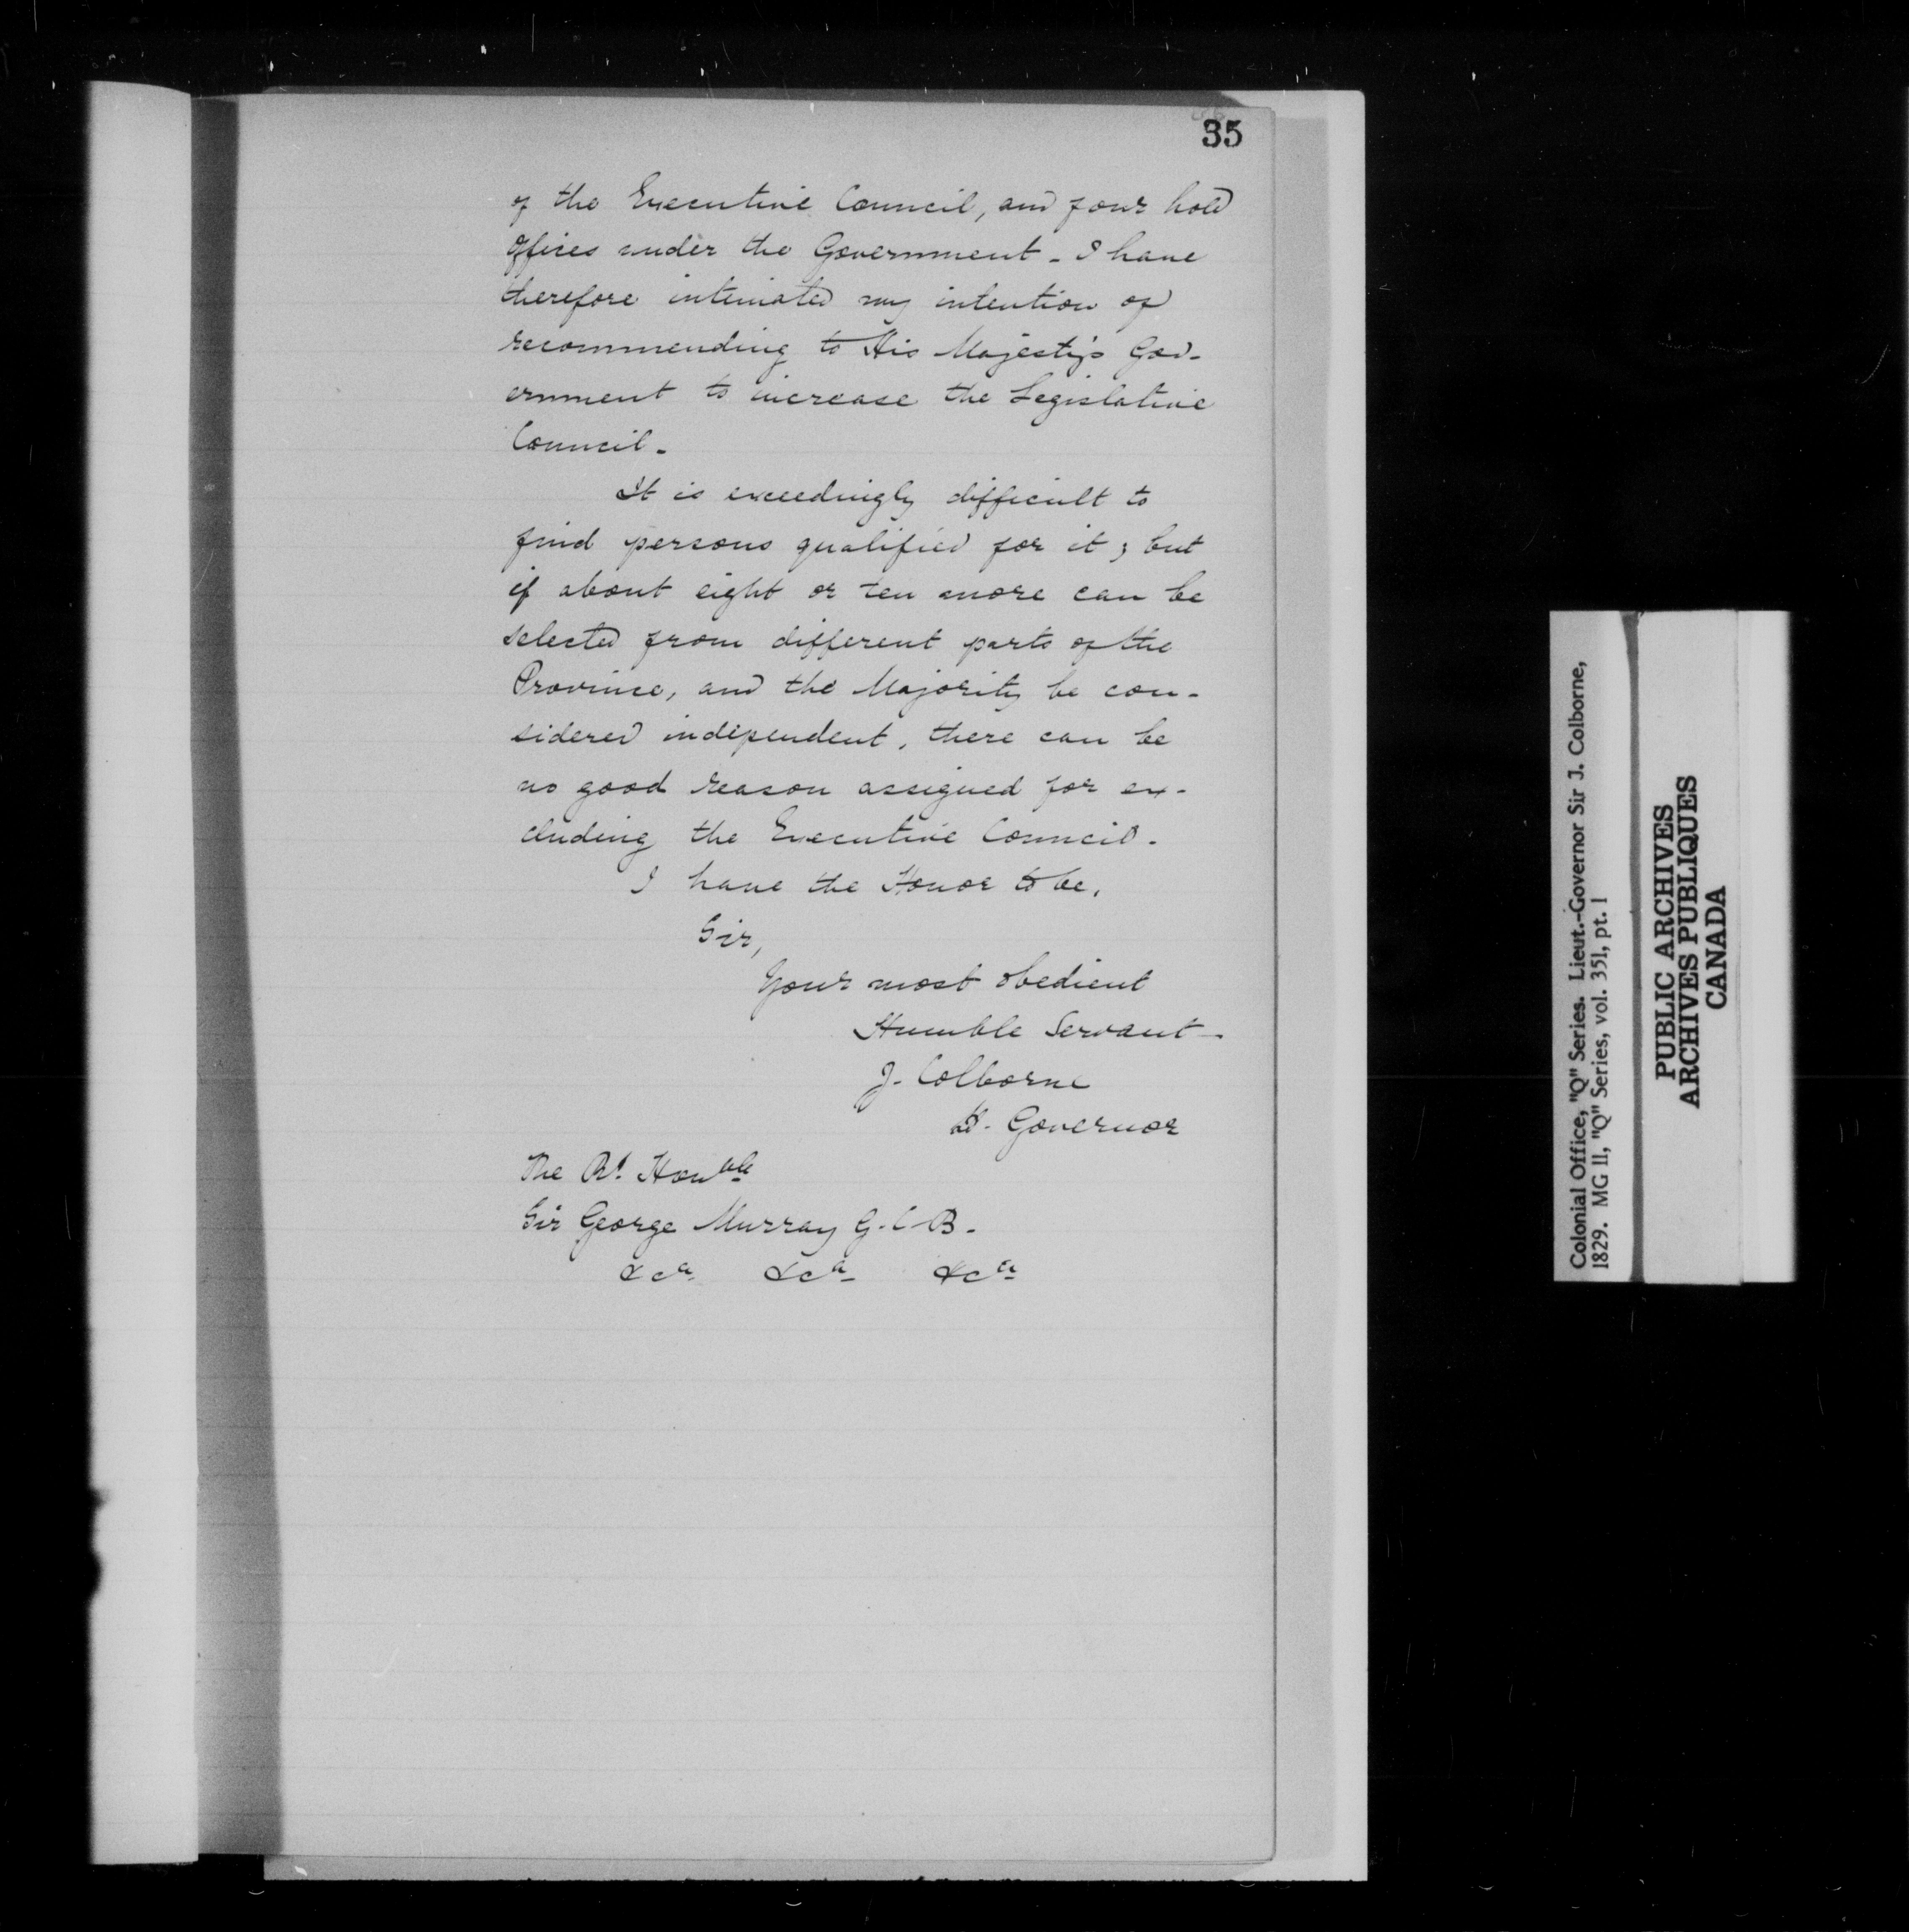 35
of the Executive Council, and four hold
Offices under the Government - I have
therefore intimated my intention of
recommending to His Majesty's Gov-
ernment to increase the Legislative
Council -
It is exceedingly difficult to
find persons qualified for it; but
if about eight or ten more can be
selected from different parts of the
Province, and the Majority be con-
sidered independent, there can be
no good reason assigned for ex-
cluding the Executive Council.
I have the Honor to be,
Sir,
Your most obedient
Humble Servant -
J. Colborne
Lt. Governor
The Rt. Honble
Sir George Murray G.C.B.
&ca &ca &ca
Colonial Office, "Q" Series. Lieut.-Governor Sir J. Colborne,
1829. MG 11, "Q" Series, vol. 351, pt. 1
PUBLIC ARCHIVES
ARCHIVES PUBLIQUES
CANADA